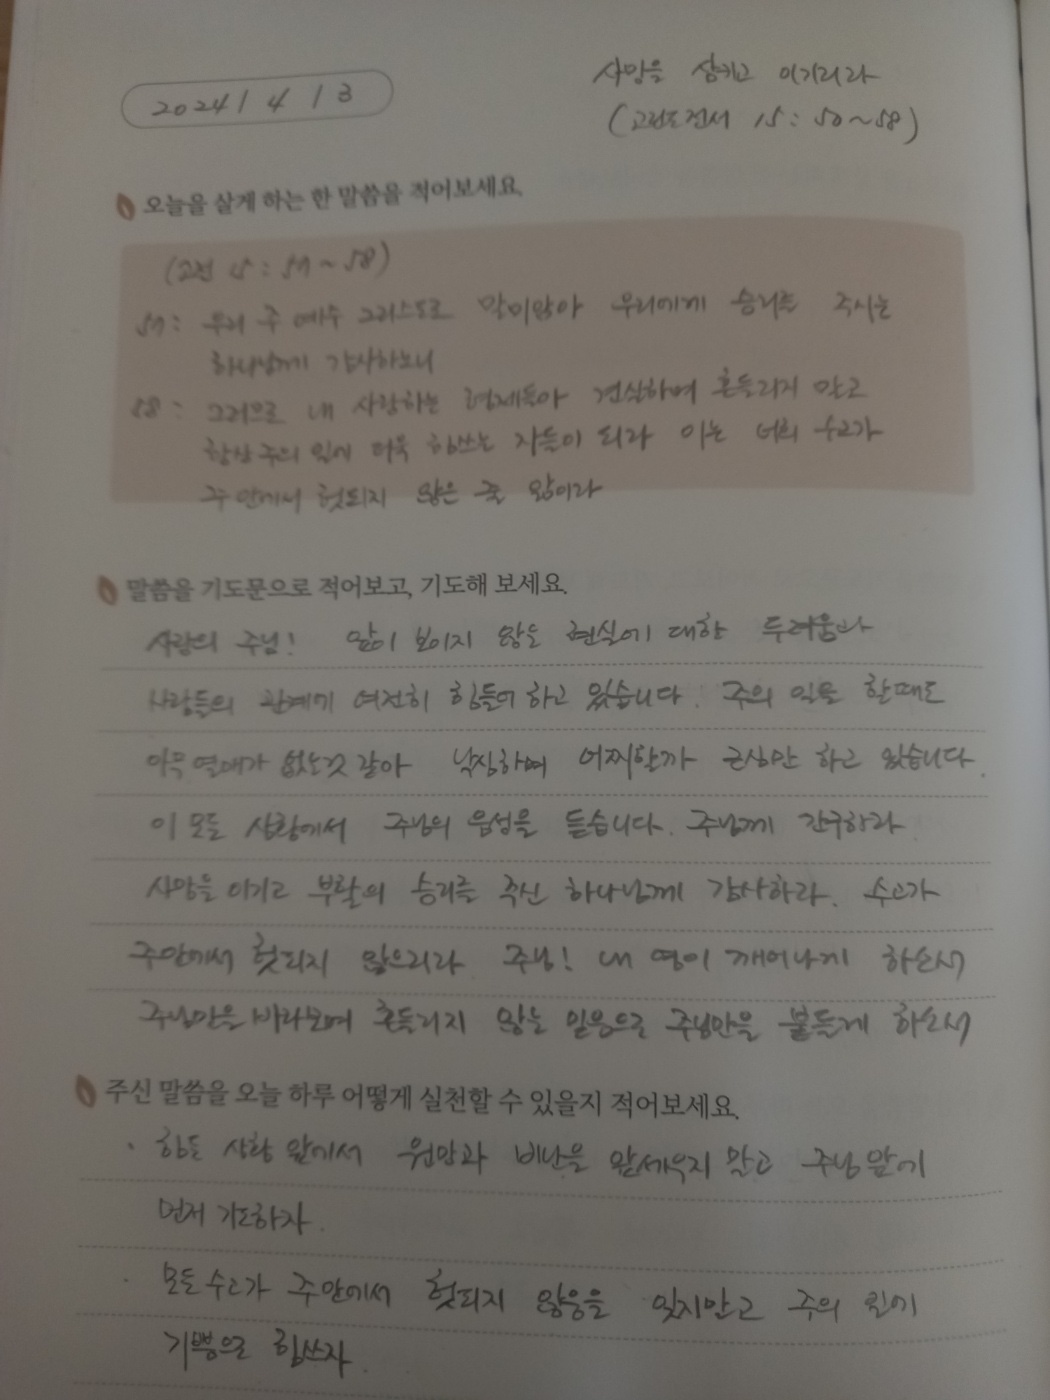 사망을 삼키고 이기리라
2024 / 4 / 3
(고린도전서 15 : 50~58)
오늘을 살게 하는 한 말씀을 적어보세요.
(고전 15 : 57~58)
57: 우리 주 예수 그리스도로 말미암아 우리에게 승리를 주시는
하나님께 감사하노니
58: 그러므로 내 사랑하는 형제들아 견실하며 흔들리지 말고
항상 주의 일에 더욱 힘쓰는 자들이 되라 이는 너희 수고가
주 안에서 헛되지 않은 줄 앎이라
말씀을 기도문으로 적어보고, 기도해 보세요.
사랑의 주님! 앞이 보이지 않는 현실에 대한 두려움과
사람들의 관계가 여전히 힘들어 하고 있습니다. 주의 일을 할때도
아무 열매가 없는것 같아 낙심하며 어찌할까 근심만 하고 있습니다.
이 모든 상황에서 주님의 음성을 듣습니다. 주님께 간구하라
사망을 이기고 부활의 승리를 주신 하나님께 감사하라. 수고가
주안에서 헛되지 않으리라 주님! 내 영이 깨어나게 하소서
주님만을 바라보며 흔들리지 않는 믿음으로 주님만을 붙들게 하소서
주신 말씀을 오늘 하루 어떻게 실천할 수 있을지 적어보세요.
· 힘든 상황 앞에서 원망과 비난을 앞세우지 말고 주님 앞에
먼저 기도하자.
· 모든 수고가 주안에서 헛되지 않음을 잊지말고 주의 일에
기쁨으로 힘쓰자.